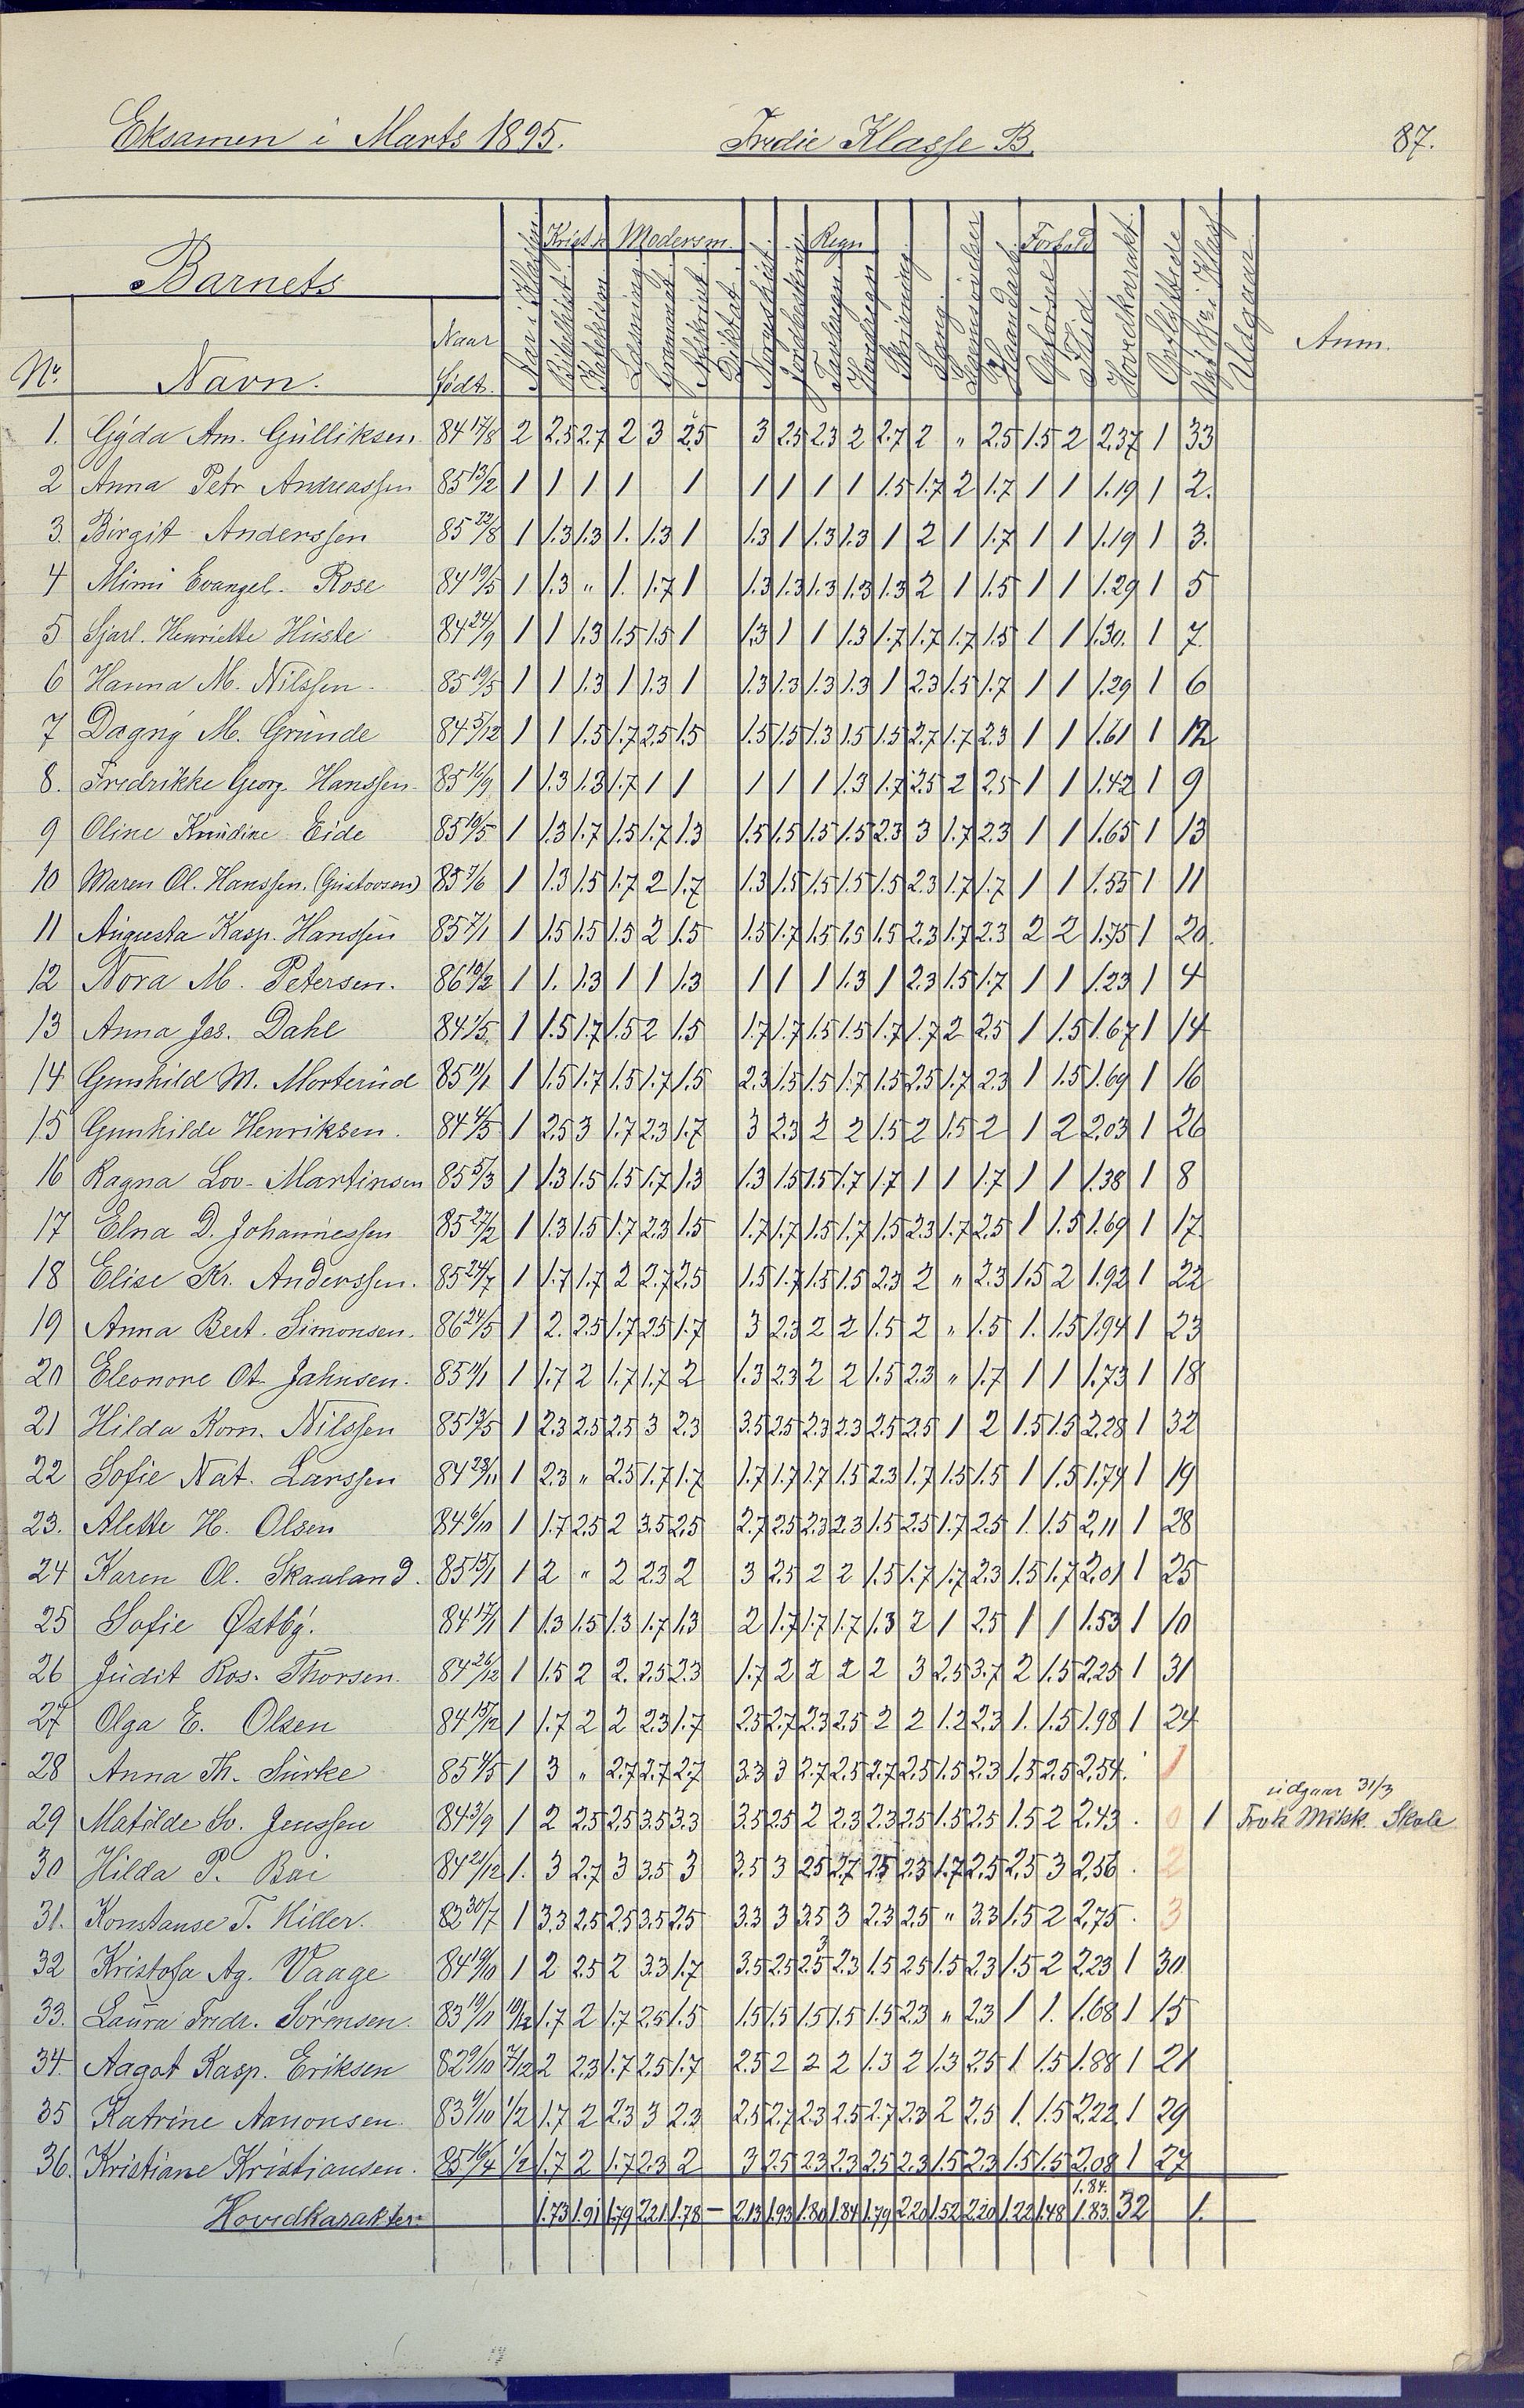 Eksamen i Marts 1895. Tredie Klasse B. 87.
Barnets
Krist.k. Modersm. Regn Forhold
Nr. Navn. Naar født. Aar i Klassen Bibelhist. Katekism Læsning Grammat. Afskrivt. Diktat. Jordbeskriv. Tavleregn Hovedregn Skrivning Sang. Haandarb. Opførsel Flid Hovedkarakt. Opflyttede Udgaar. Anm.
1. Gyda Am. Gulliksen. 84 17/8 2 2.5 2.7 2 3 2.5 3 2.5 2.3 2 2.7 2 " 2.5 1.5 2 2.37 1 33
2 Anna Petr Andreassen 85 13/2 1 1 1 1 1 1 1 1 1 1.5 1.7 2 1.7 1 1 1.19 1 2.
3. Birgit Anderssen 85 22/8 1 1.3 1.3 1. 1.3 1 1.3 1 1.3 1.3 1 2 1 1.7 1 1 1.19 1 3.
4 Mimi Evangel. Rose 84 19/5 1 1.3 " 1. 1.7 1 1.3 1.3 1.3 1.3 1.3 2 1 1.5 1 1 1.29 1 5
5 Sjarl. Henriette Huste 84 24/9 1 1 1.3 1.5 1.5 1 1.3 1 1 1.3 1.7 1.7 1.7 1.5 1 1 1.30. 1 7.
6 Hanna M. Nilssen. 85 19/5 1 1 1.3 1 1.3 1 1.3 1.3 1.3 1.3 1 2.3 1.5 1.7 1 1 1.29 1 6
7 Dagny M. Grunde 84 5/12 1 1 1.5 1.7 2.5 1.5 1.5 1.5 1.3 1.5 1.5 2.7 1.7 2.3 1 1 1.61 1 12
8. Fredrikke Georg. Hanssen. 85 16/9 1 1.3 1.3 1.7 1 1 1 1 1 1.3 1.7 2.5 2 2.5 1 1 1.42 1 9
9 Oline Knudine Eide 85 19/5 1 1.3 1.7 1.5 1.7 1.3 1.5 1.5 1.5 1.5 2.3 3 1.7 2.3 1 1 1.65 1 13
10 Maren Ol. Hanssen. (Gustovsen) 85 7/6 1 1.3 1.5 1.7 2 1.7 1.3 1.5 1.5 1.5 1.5 2.3 1.7 1.7 1 1 1.55 1 11
11 Augusta Kasp. Hanssen 85 7/1 1 1.5 1.5 1.5 2 1.5 1.5 1.7 1.5 1.5 1.5 2.3 1.7 2.3 2 2 1.75 1 20.
12 Nora M. Petersen. 86 10/2 1 1. 1.3 1 1 1.3 1 1 1 1.3 1 2.3 1.5 1.7 1 1 1.23 1 4
13 Anna Jos. Dahl 84 1/5. 1 1.5 1.7 1.5 2 1.5 1.7 1.7 1.5 1.5 1.7 1.7 2 2.5 1 1.5 1.67 1 14
14 Gunhild M. Mosterud 85 19/1 1 1.5 1.7 1.5 1.7 1.5 2.3 1.5 1.5 1.7 1.5 2.5 1.7 2.3 1 1.5 1.69 1 16
15 Gunhilde Henriksen. 84 4/5 1 2.5 3 1.7 2.3 1.7 3 2.3 2 2 1.5 2 1.5 2 1 2 2.03 1 26
16 Ragna Lov. Martinsen 85 5/3 1 1.3 1.5 1.5 1.7 1.3 1.3 1.5 1.5 1.7 1.7 1 1 1.7 1 1 1.38 1 8
17 Elna D. Johannessen 85 27/2 1 1.3 1.5 1.7 2.3 1.5 1.7 1.7 1.5 1.7 1.5 2.3 1.7 2.5 1 1.5 1.69 1 17
18 Elise Kr. Anderssen. 85 24/7 1 1.7 1.7 2 2.7 2.5 1.5 1.7 1.5 1.5 2.3 2 " 2.3 1.5 2 1.92 1 22
19 Anna Bert. Simonsen. 86 24/5 1 2. 2.5 1.7 2.5 1.7 3 2.3 2 2 1.5 2 " 1.5 1. 1.5 1.94 1 23
20 Eleonore Ot. Jahnsen. 85 11/1 1 1.7 2 1.7 1.7 2 1.3 2.3 2 2 1.5 2.3 " 1.7 1 1 1.73 1 18
21 Hilda Korn. Nilssen 85 13/5 1 2.3 2.5 2.5 3 2.3 3.5 2.5 2.3 2.3 2.5 2.5 1 2 1.5 1.5 2.28 1 32
22 Sofie Nat. Larssen 84 28/11 1 2.3 " 2.5 1.7 1.7 1.7 1.7 1.7 1.5 2.3 1.7 1.5 1.5 1 1.5 1.74 1 19
23. Alette H. Olsen 84 6/10 1 1.7 2.5 2 3.5 2.5 2.7 2.5 2.3 2.3 1.5 2.5 1.7 2.5 1. 1.5 2.11 1 28
24 Karen Ol. Skauland. 85 15/1 1 2 " 2 2.3 2 3 2.5 2 2 1.5 1.7 1.7 2.3 1.5 1.7 2.01 1 25
25 Sofie Østby. 84 17/1 1 1.3 1.5 1.3 1.7 1.3 2 1.7 1.7 1.7 1.3 2 1 2.5 1 1 1.53 1 10
26 Judit Ros. Thorsen. 84 26/12 1 1.5 2 2. 2.5 2.3 1.7 2 2 2 2 3 2.5 3.7 2 1.5 2.25 1 31
27 Olga E. Olsen 84 15/12 1 1.7 2 2 2.3 1.7 2.5 2.7 2.3 2.5 2 2 1.2 2.3 1. 1.5 1.98 1 24
28 Anna Th. Surke 85 4/5 1 3 " 2.7 2.7 2.7 3.3 3 2.7 2.5 2.7 2.5 1.5 2.3 1.5 2.5 2.54. 1
udgaar 31/3
29 Matilde So. Jenssen 84 3/9 1 2 2.5 2.5 3.5 3.3 3.5 2.5 2 2.3 2.3 2.5 1.5 2.5 1.5 2 2.43. 0 1 Frok Skole
30 Hilda P. Bai 84 21/12 1. 3 2.7 3 3.5 3 3.5 3 2.5 2.7 2.5 2.3 1.7 2.5 2.5 3 2.56. 2
31. Konstanse T. Hiller. 82 30/7 1 3.3 2.5 2.5 3.5 2.5 3.3 3 3.5 3 2.3 2.5 " 3.3 1.5 2 2.75. 3
32 Kristofa Ag. Vaage 84 19/10 1 2 2.5 2 3.3 1.7 3.5 2.5 2.5 2.3 1.5 2.5 1.5 2.3 1.5 2 2.23 1 30
33. Laura Fredr. Sörensen. 83 19/11 19/12 1.7 2 1.7 2.5 1.5 1.5 1.5 1.5 1.5 1.5 2.3 " 2.3 1 1. 1.68 1 15
34. Aagot Kasp. Eriksen 82 9/10 7/12 2 2.3 1.7 2.5 1.7 2.5 2 2 2 1.3 2 1.3 2.5 1. 1.5 1.88 1 21
35 Katrine Aanonsen. 83 9/10 1/2 1.7 2 2.3 3 2.3 2.5 2.7 2.3 2.5 2.7 2.3 2 2.5 1. 1.5 2.22 1 29
36. Kristiane Kristiansen. 85 16/4 1/2 1.7 2 1.7 2.3 2 3 2.5 2.3 2.3 2.5 2.3 1.5 2.3 1.5 1.5 2.08 1 27
1.84.
Hovedkarakter: 1.73 1.91 1.79 2.21 1.78 – 2.13 1.93 1.80 1.84 1.79 2.20 1.52 2.20 1.22 1.48 1.83. 32 1.